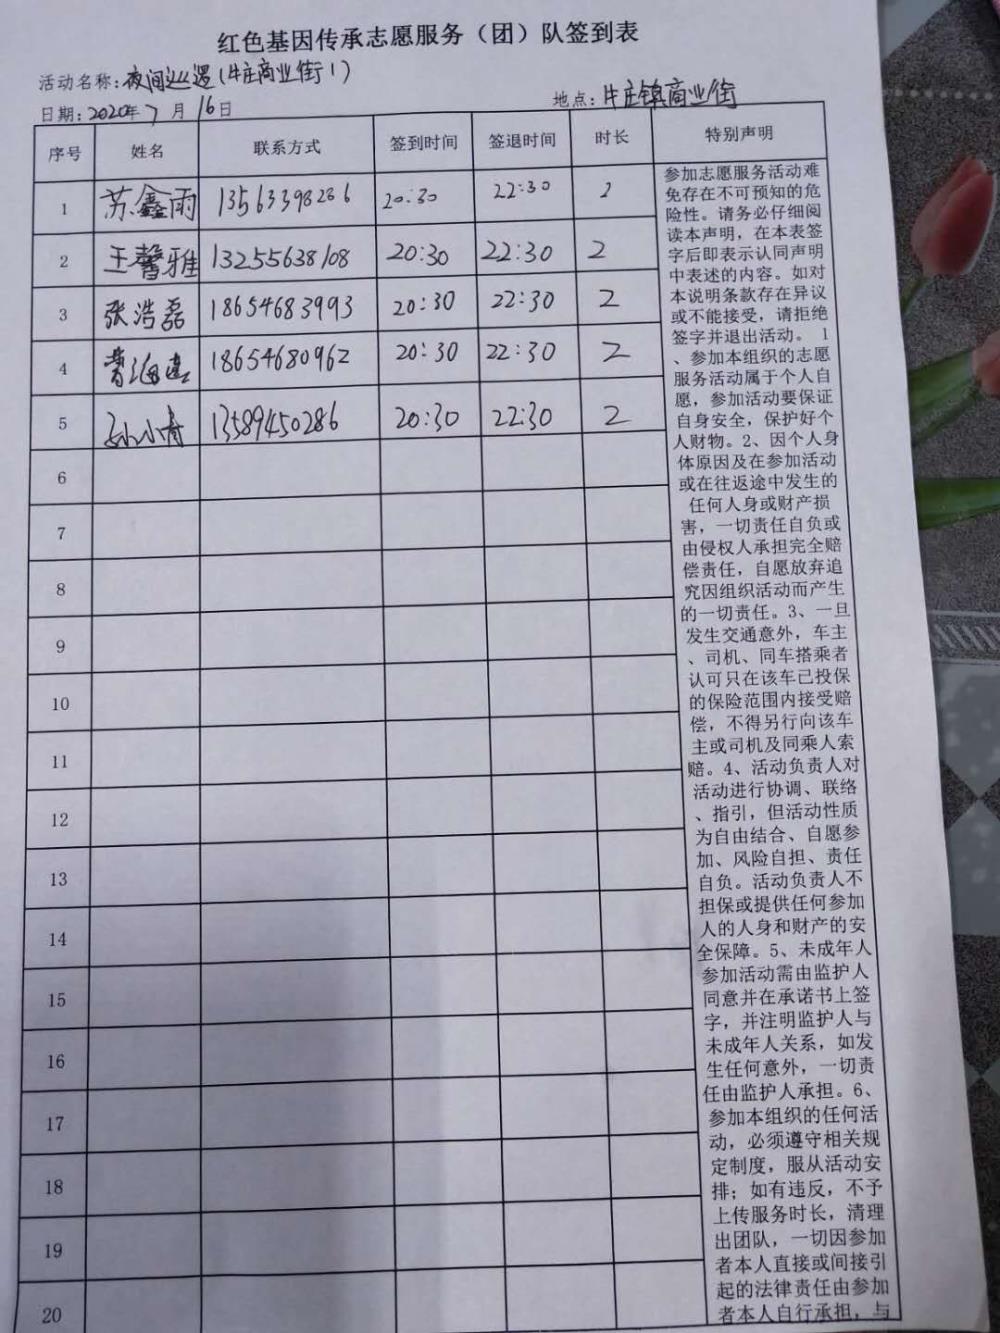 红色基因传承志愿服务（团）队签到表
活动名称：夜间巡逻（牛庄商业街1）
日期：2020年7月16日 地点：牛庄镇商业街
序号 姓名 联系方式 签到时间 签退时间 时长 特别声明
1 苏鑫雨 13563398286 20:30 22:30 2
2 王馨雅 13255638108 20:30 22:30 2
3 张浩磊 18654683993 20:30 22:30 2
4 18654680962 20:30 22:30 2
5 孙小青 13589450286 20:30 22:30 2
6
7
8
9
10
11
12
13
14
15
16
17
18
19
20
参加志愿服务活动难
免存在不可预知的危
险性。请务必仔细阅
读本声明，在本表签
字后即表示认同声明
中表述的内容。如对
本说明条款存在异议
或不能接受，请拒绝
签字并退出活动。 1
、参加本组织的志愿
服务活动属于个人自
愿，参加活动要保证
自身安全，保护好个
人财物。2、因个人身
体原因及在参加活动
或在往返途中发生的
任何人身或财产损
害，一切责任自负或
由侵权人承担完全赔
偿责任，自愿放弃追
究因组织活动而产生
的一切责任。3、一旦
发生交通意外，车主
、司机、同车搭乘者
认可只在该车已投保
的保险范围内接受赔
偿，不得另行向该车
主或司机及同乘人索
赔。4、活动负责人对
活动进行协调、联络
、指引，但活动性质
为自由结合、自愿参
加、风险自担、责任
自负。活动负责人不
担保或提供任何参加
人的人身和财产的安
全保障。5、未成年人
参加活动需由监护人
同意并在承诺书上签
字，并注明监护人与
未成年人关系，如发
生任何意外，一切责
任由监护人承担。6、
参加本组织的任何活
动，必须遵守相关规
定制度，服从活动安
排；如有违反，不予
上传服务时长，清理
出团队，一切因参加
者本人直接或间接引
起的法律责任由参加
者本人自行承担，与